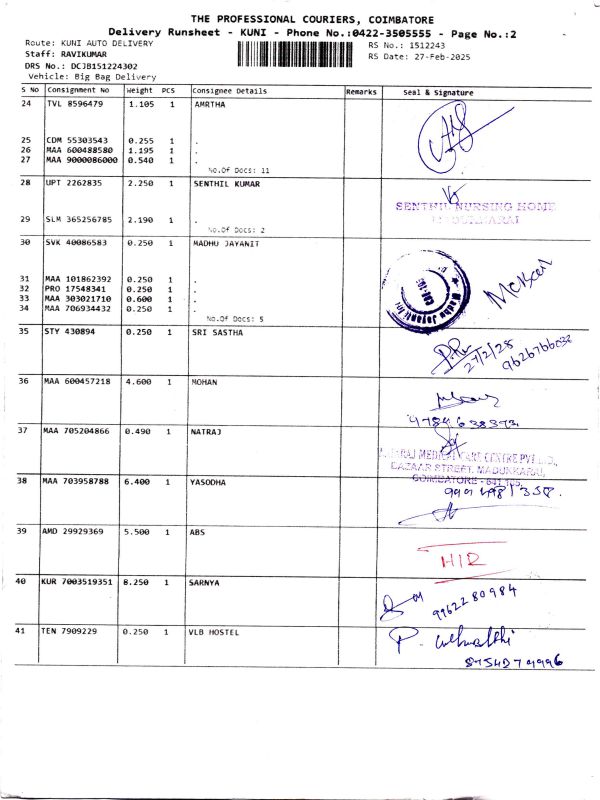 THE PROFESSIONAL COURIERS, COIMBATORE
Delivery Runsheet - KUNI - Phone No.:0422-3505555 - Page No.:2
Route: KUNI AUTO DELIVERY
RS No.: 1512243
Staff: RAVIKUMAR
RS Date: 27-Feb-2025
DRS No.: DCJB151224302
Vehicle: Big Bag Delivery
S No Consignment No Weight PCS Consignee Details Remarks Seal & Signature
24 TVL 8596479 1.105 1 AMRTHA
25 CDM 55303543 0.255 1 .
26 MAA 600488580 1.195 1 .
27 MAA 9000086000 0.540 1 .
No.Of Docs: 11
28 UPT 2262835 2.250 1 SENTHIL KUMAR
SENTHIL NURSING HOME
29 SLM 365256785 2.190 1 .
No.Of Docs: 2
30 SVK 40086583 0.250 1 MADHU JAYANIT
31 MAA 101862392 0.250 1 .
32 PRO 17548341 0.250 1 .
33 MAA 303021710 0.600 1 .
34 MAA 706934432 0.250 1 .
No.Of Docs: 5
35 STY 430894 0.250 1 SRI SASTHA
27/2/25
36 MAA 600457218 4.600 1 MOHAN
37 MAA 705204866 0.490 1 NATRAJ
MEDICAL CARE CENTRE PVT LTD.,
BAZAAR STREET, MADUKKARAI,
COIMBATORE - 641 105.
38 MAA 703958788 6.400 1 YASODHA
39 AMD 29929369 5.500 1 ABS
HIR
40 KUR 7003519351 8.250 1 SARNYA
9962280984
41 TEN 7909229 0.250 1 VLB HOSTEL